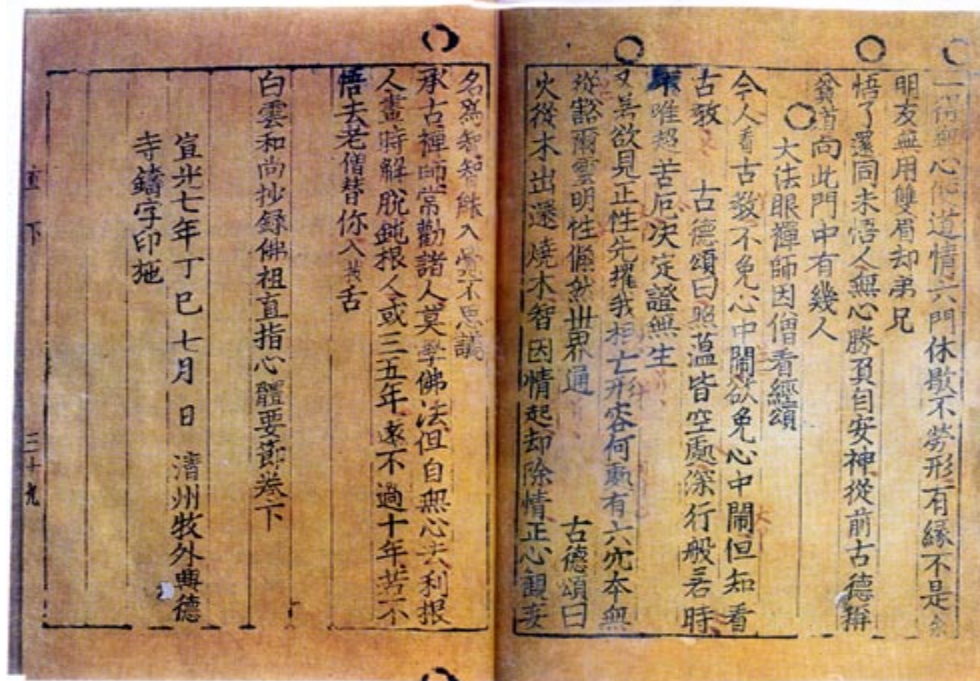 一得無心便道情六門休歇不勞形有緣不是余
明友無用雙眉却弟兄
悟了還同未悟人無心勝負自安神從前古德稱
貧道向此門中有幾人
大法眼禪師因僧看經頌
今人看古教不免心中鬧欲免心中鬧但知看
古教 古德頌曰照蘊皆空處深行般若時
唯超苦厄決定證無生
又善欲見正性先擢我相亡形容何處有六宂本無
從豁爾雲明性偹然卋界通 古德頌曰
火從木出還燒木智因情起却除情正心觀妄
名爲智智能入 不思議
承古禪師常勸諸人莫學佛法但自無心去利根
人晝時解脫鈍根人或三五年遠不過十年若不
悟去老僧替你入 舌
白雲和尚抄錄佛祖直指心體要節卷下
宣光七年丁巳七月 日 淸州牧外興德
寺鑄字印施
下
三十九